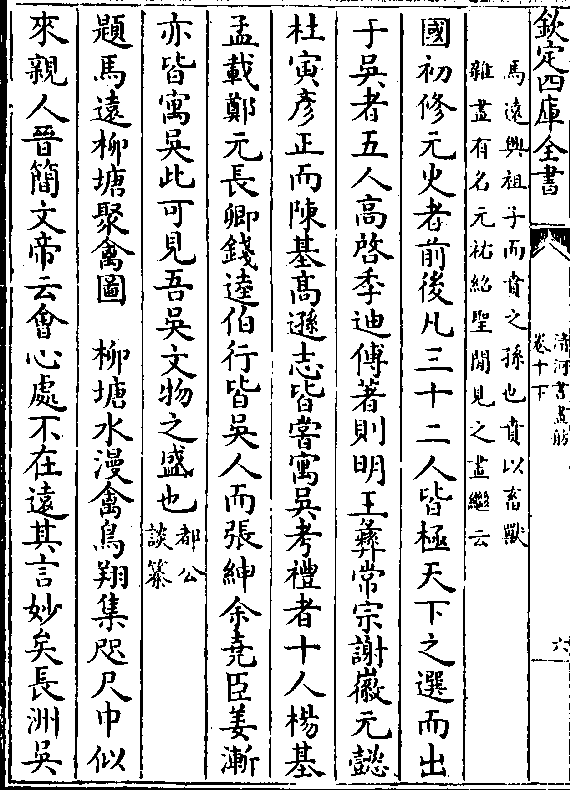 欽定四庫全書
清河書畫舫
卷十下
六
馬遠興祖子而賁之孫也賁以畜獸
雜畫有名元祐紹聖間見之畫繼云
國初修元史者前後凡三十二人皆極天下之選而出
于吳者五人高啓季迪傅著則明王彝常宗謝徽元懿
杜寅彥正而陳基高遜志皆嘗寓吳考禮者十人楊基
孟載鄭元長卿錢逵伯行皆吳人而張紳余堯臣姜漸
亦皆寓吳此可見吾吳文物之盛也都公
談纂
題馬遠柳塘聚禽圖　柳塘水漫禽鳥翔集咫尺中似
來親人晉簡文帝云會心處不在遠其言妙矣長洲吳